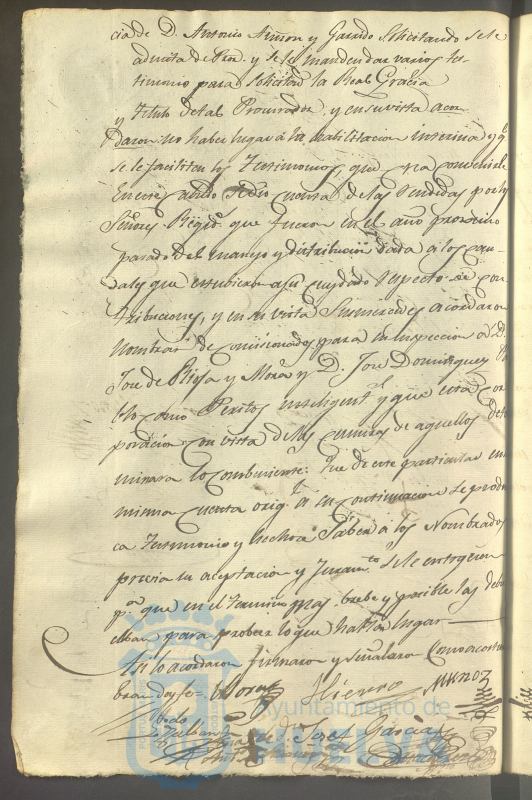 cia de D. Antonio y Garrido Solicitando se le
admita de Pror. y se le manden dar varios tes-
timonio para Solicitar la Real Gracia
y titulo de tal Procurador y en su vista acor
daron: no haber lugar á la habilitacion y q.
se le faciliten los Testimonios, que sea conveniente
En este cavildo cuenta de las rendidas por los
Señores Regid.s que fueron en el año proximo
pasado del manejo y distribucion dada á los cau-
dales que estubieron a su cuydado respecto de con-
tribuciones, y en su vista Sus mercedes acordaron
nombrar de comisionados para su inspeccion a D.
Jose de y Mora y D. Jose Dominguez
como Peritos inteligent.s y que esta cor
poracion con vista de las de aquellos deter
minara lo combeniente: Que de este particular en
misma cuenta orig.l á su continuacion se produz
ca Testimonio y hechose Saber a los Nombrados
precia su aceptacion y Juram.to se le entreguen
p.a que en el termino mas brebe y posible las debu
elban para prober lo que halla lugar
Asi lo acordaron firmaron y señalaron como acostum
bran doy fe=
Mora Hierro Muñoz
Jose Garcia
Ayuntamiento de
HUELVA